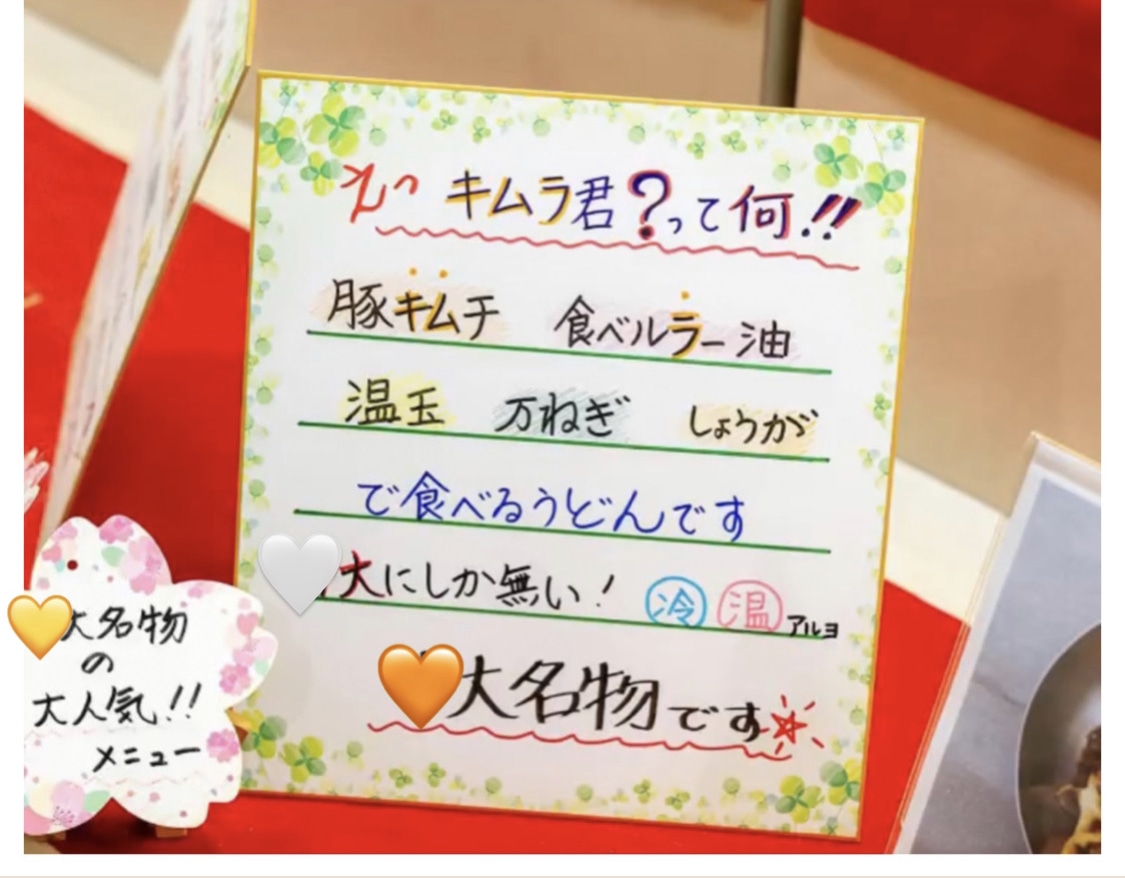 えっ キムラ君?って何!!
豚キムチ 食べルラー油
温玉 万ねぎ しょうが
で食べるうどんです
大にしか無い! 冷 温 アルヨ
大名物です
大名物
の
大人気!!
メニュー